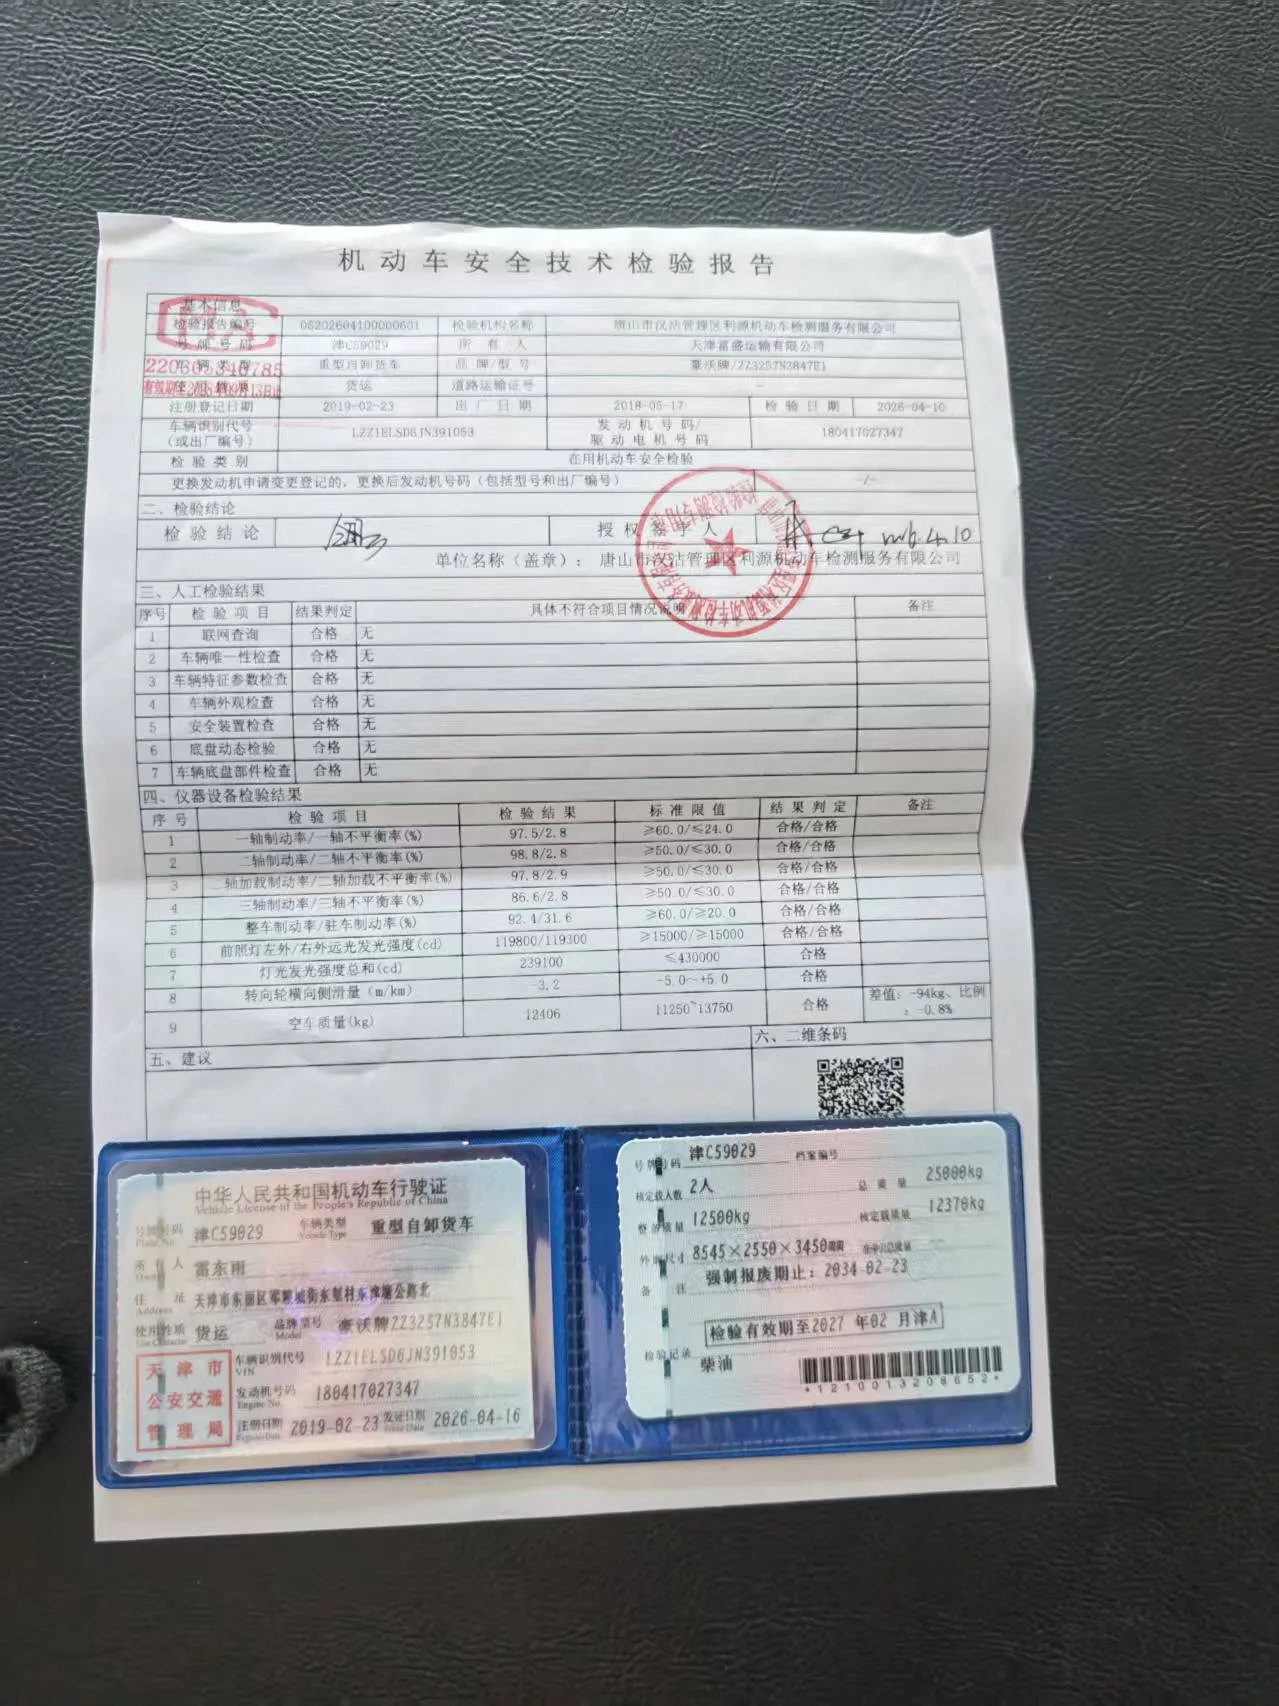 机动车安全技术检验报告
一、基本信息
检验报告编号 06202604100000601 检验机构名称 唐山市汉沽管理区利源机动车检测服务有限公司
号牌号码 津C59029 所有人 天津富盛运输有限公司
车辆类型 重型自卸货车 品牌/型号 豪沃牌/ZZ3257N3847E1
220605340785
使用性质 货运 道路运输证号 -
注册登记日期 2019-02-23 出厂日期 2018-05-17 检验日期 2026-04-10
车辆识别代号(或出厂编号) LZZ1ELSD6JN391053 发动机号码/驱动电机号码 180417027347
检验类别 在用机动车安全检验
更换发动机申请变更登记的，更换后发动机号码(包括型号和出厂编号) -/-
二、检验结论
检验结论 授权签字人
单位名称（盖章）：唐山市汉沽管理区利源机动车检测服务有限公司
三、人工检验结果
序号 检验项目 结果判定 具体不符合项目情况说明 备注
1 联网查询 合格 无
2 车辆唯一性检查 合格 无
3 车辆特征参数检查 合格 无
4 车辆外观检查 合格 无
5 安全装置检查 合格 无
6 底盘动态检验 合格 无
7 车辆底盘部件检查 合格 无
四、仪器设备检验结果
序号 检验项目 检验结果 标准限值 结果判定 备注
1 一轴制动率/一轴不平衡率(%) 97.5/2.8 ≥60.0/≤24.0 合格/合格
2 二轴制动率/二轴不平衡率(%) 98.8/2.8 ≥50.0/≤30.0 合格/合格
3 二轴加载制动率/二轴加载不平衡率(%) 97.8/2.9 ≥50.0/≤30.0 合格/合格
4 三轴制动率/三轴不平衡率(%) 86.6/2.8 ≥50.0/≤30.0 合格/合格
5 整车制动率/驻车制动率(%) 92.4/31.6 ≥60.0/≥20.0 合格/合格
6 前照灯左外/右外远光发光强度(cd) 119800/119300 ≥15000/≥15000 合格/合格
7 灯光发光强度总和(cd) 239100 ≤430000 合格
8 转向轮横向侧滑量（m/km） -3.2 -5.0~+5.0 合格
9 空车质量(kg) 12406 11250~13750 合格 差值：-94kg、比例：-0.8%
五、建议
六、二维条码
中华人民共和国机动车行驶证
Vehicle License of the People's Republic of China
号牌号码 Plate No. 津C59029 车辆类型 Vehicle Type 重型自卸货车
所有人 Owner 雷东雨
住址 Address
使用性质 Use Character 货运 品牌型号 Model 豪沃牌ZZ3257N3847E1
车辆识别代号 VIN LZZ1ELSD6JN391053
天津市公安交通管理局
发动机号码 Engine No. 180417027347
注册日期 Register Date 2019-02-23 发证日期 Issue Date 2026-04-16
号牌号码 津C59029 档案编号
核定载人数 2人 总质量 25000kg
整备质量 12500kg 核定载质量 12370kg
外廓尺寸 8545×2550×3450
备注 强制报废期止：2034-02-23
检验有效期至2027年02月津A
检验记录
柴油
*1210013208652*